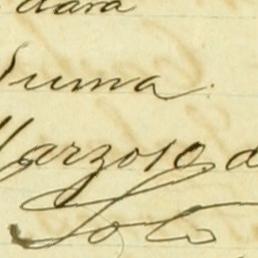 dara
Suma.
Marzo 10 d
Soto